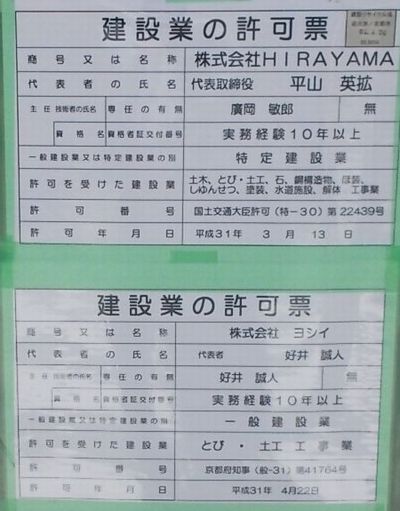 建設業の許可票
商号又は名称 株式会社HIRAYAMA
代表者の氏名 代表取締役 平山 英拡
主任技術者の氏名 専任の有無 廣岡 敏郎 無
資格名 資格者証交付番号 実務経験10年以上
一般建設業又は特定建設業の別 特定建設業
許可を受けた建設業 土木、とび・土工、石、鋼構造物、ほ装、
しゆんせつ、塗装、水道施設、解体 工事業
許可番号 国土交通大臣許可(特-30)第22439号
許可年月日 平成31年 3月 13日
建設業の許可票
商号又は名称 株式会社 ヨシイ
代表者の氏名 代表者 好井 誠人
主任技術者の氏名 専任の有無 好井 誠人 無
資格名 資格者証交付番号 実務経験10年以上
一般建設業又は特定建設業の別 一般建設業
許可を受けた建設業 とび・土工工事業
許可番号 京都府知事(般-31)第41764号
許可年月日 平成31年 4月22日